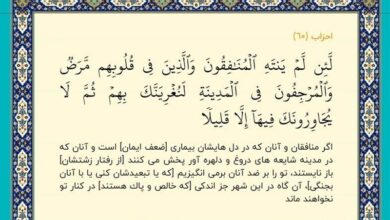 احزاب (٦٠)
لَّئِن لَّمْ يَنتَهِ ٱلْمُنَـٰفِقُونَ وَٱلَّذِينَ فِى قُلُوبِهِم مَّرَضٌ
وَٱلْمُرْجِفُونَ فِى ٱلْمَدِينَةِ لَنُغْرِيَنَّكَ بِهِمْ ثُمَّ لَا
يُجَاوِرُونَكَ فِيهَآ إِلَّا قَلِيلًا
اگر منافقان و آنان که در دل هایشان بیماری [ضعف ایمان] است و آنان که
در مدینه شایعه های دروغ و دلهره آور پخش می کنند [از رفتار زشتشان]
باز نایستند، تو را بر ضد آنان برمی انگیزیم [که یا تبعیدشان کنی یا با آنان
بجنگی]، آن گاه در این شهر جز اندکی [که خالص و پاک هستند] در کنار تو
نخواهند ماند